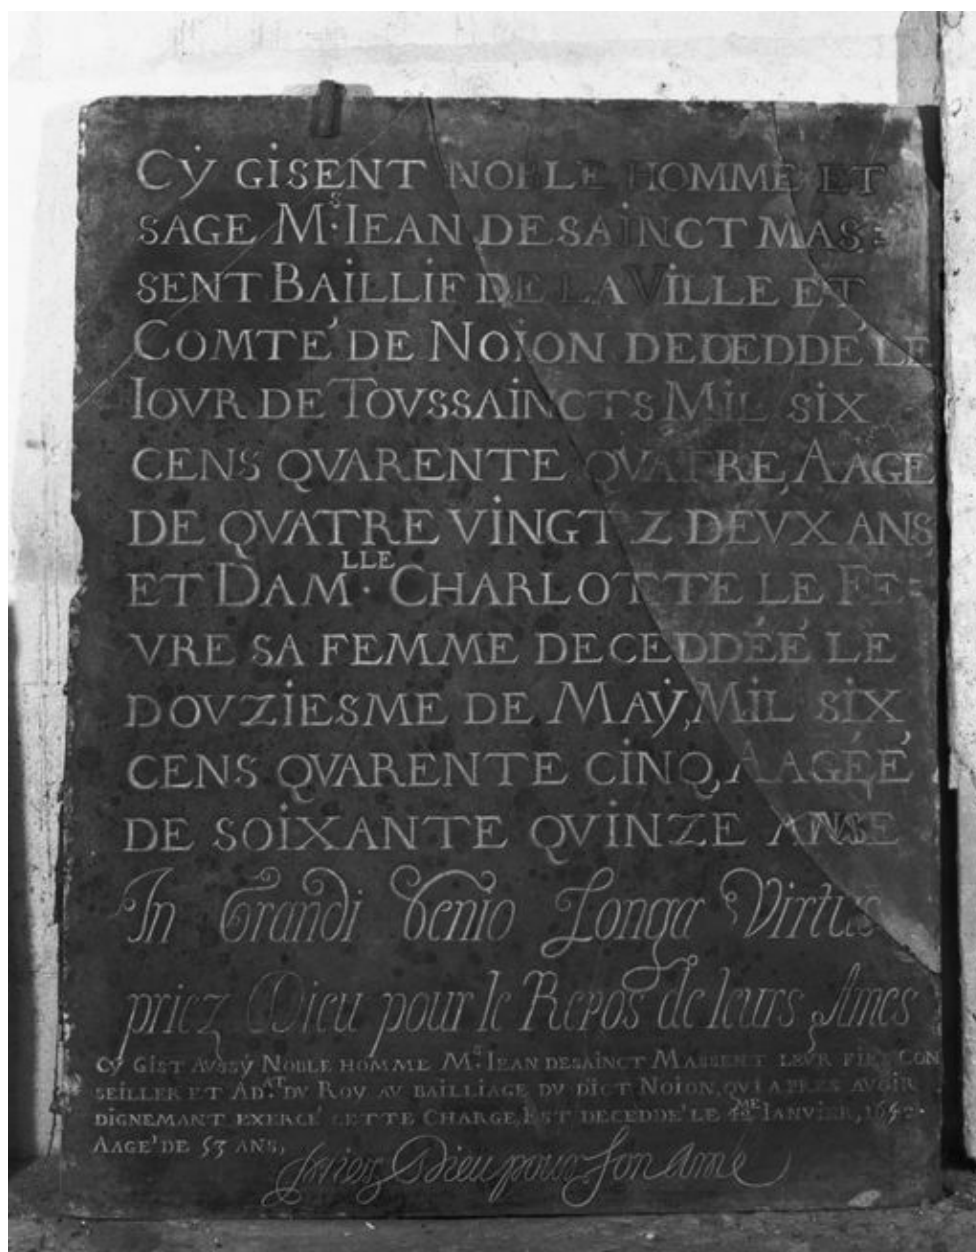 CẎ GISENT NOBLE HOMME ET
SAGE Mˢ. IEAN DESAINCT MAS=
SENT BAILLIF DE LA VILLE ET
COMTÉ DE NOION DECEDDÉ LE
IOVR DE TOVSSAINCTS MIL SIX
CENS QVARENTE QVATRE, AAGE
DE QVATRE VINGTZ DEVX ANS
ET DAM.LLE CHARLOTTE LE FE=
VRE SA FEMME DECEDDÉE LE
DOVZIESME DE MAẎ, MIL SIX
CENS QVARENTE CINQ, AAGÉE
DE SOIXANTE QVINZE ANS
In Grandi Genio Longa Virtus
priez Dieu pour le Repos de leurs Ames
CY GIST AVSSY NOBLE HOMME Mˢ. IEAN DESAINCT MASSENT LEVR FILS CON
SEILLER ET AD.AT DV ROY AV BAILLIAGE DV DICT NOION, QVI APRES AVOIR
DIGNEMANT EXERCÉ CETTE CHARGE, EST DECEDDÉ LE ME IANVIER, 1652.
AAGÉ DE 53 ANS,
Priez Dieu pour son Ame